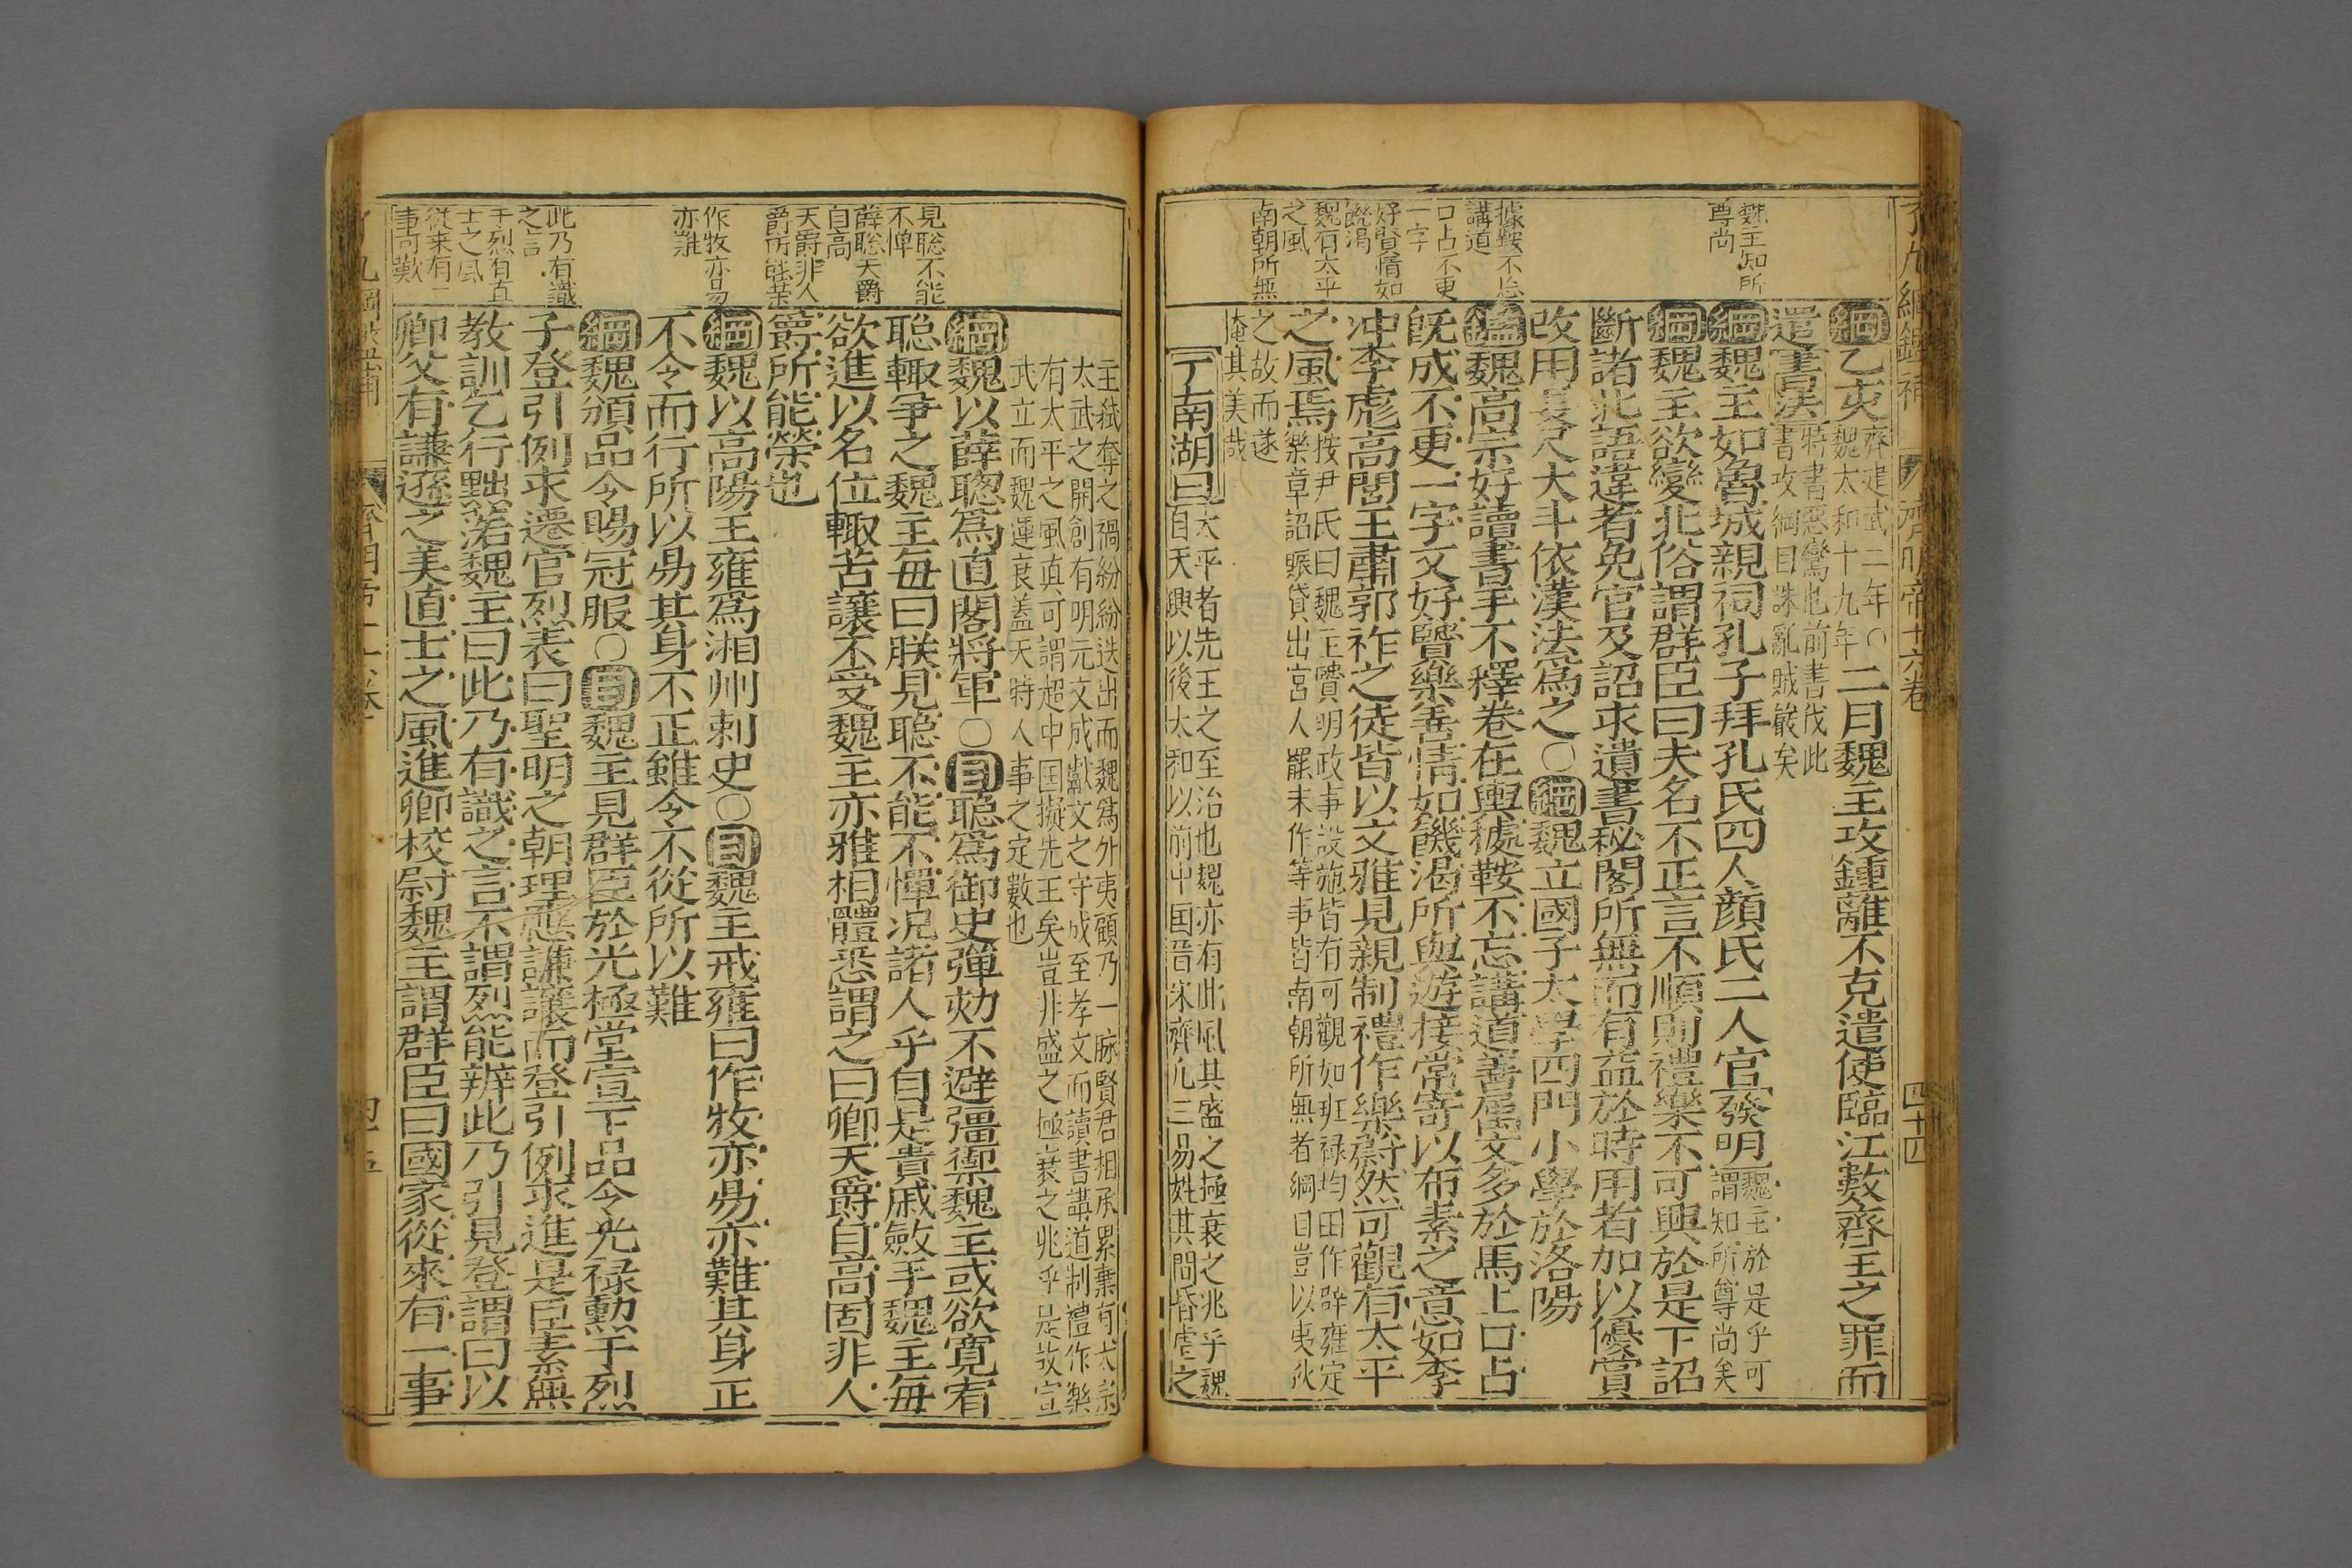 魏主知所
尊尚
據鞍不忘
講道
口占不更
一字
好賢情如
饑渴
魏有太平
之風
南朝所無
綱乙亥齊建武二年○二月魏主攻鍾離不克遣使臨江數齊主之罪而
魏太和十九年
還書法特書惡鸞也前書伐此
書攻綱目誅亂賊嚴矣
綱魏主如魯城親祠孔子拜孔氏四人顏氏二人官發明魏主於是乎可
謂知所尊尚矣
綱魏主欲變北俗謂群臣曰夫名不正言不順則禮樂不可興於是下詔
斷諸北語違者免官及詔求遺書秘閣所無而有益於時用者加以優賞
改用長尺大斗依漢法爲之○綱魏立國子太學四門小學於洛陽
鑑魏高宗好讀書手不釋卷在輿據鞍不忘講道善屬文多於馬上口占
旣成不更一字又好賢樂善情如饑渴所與遊接常寄以布素之意如李
冲李彪高閭王肅郭祚之徒皆以文雅見親制禮作樂蔚然可觀有太平
之風焉按尹氏曰魏主賢明政事設施皆有可觀如班禄均田作辟雍定
樂章詔賑貸出宮人罷末作等事皆南朝所無者綱目豈以夷狄
之故而遂
掩其美哉
丁南湖曰太平者先王之至治也魏亦有此風其盛之極衰之兆乎魏
自天興以後太和以前中国晋宋齊凡三易姓其間昏虐之
齊明帝十六卷
四十四
見聡不能
不憚
薛聡天爵
自高
天爵非人
爵所能荣
作牧亦易
亦難
此乃有識
之言
于烈有直
士之風
從来有一
事可歎
主弑奪之禍紛紛迭出而魏爲外夷顧乃一脉賢君相承累棄有太宗
太武之開創有明元文成獻文之守成至孝文而讀書講道制禮作樂
有太平之風真可謂超中国擬先王矣豈非盛之極衰之兆乎是故宣
武立而魏運衰蓋天時人事之定數也
綱魏以薛聦爲直閣將軍○目聡爲御史彈劾不避彊禦魏主或欲寛宥
聡輙爭之魏主每曰朕見聡不能不憚况諸人乎自是貴戚斂手魏主每
欲進以名位輙苦讓不受魏主亦雅相體悉謂之曰卿天爵自高固非人
爵所能榮也
綱魏以高陽王雍爲湘州刺史○目魏主戒雍曰作牧亦易亦難其身正
不令而行所以易其身不正雖令不從所以難
綱魏頒品令賜冠服○目魏主見群臣於光極堂宣下品令光禄勲于烈
子登引例求遷官烈表曰聖明之朝理應謙讓而登引例求進是臣素無
教訓乞行黜落魏主曰此乃有識之言不謂烈能辦此乃引見登謂曰以
卿父有謙遜之美直士之風進卿校尉魏主謂群臣曰國家從來有一事
四十五